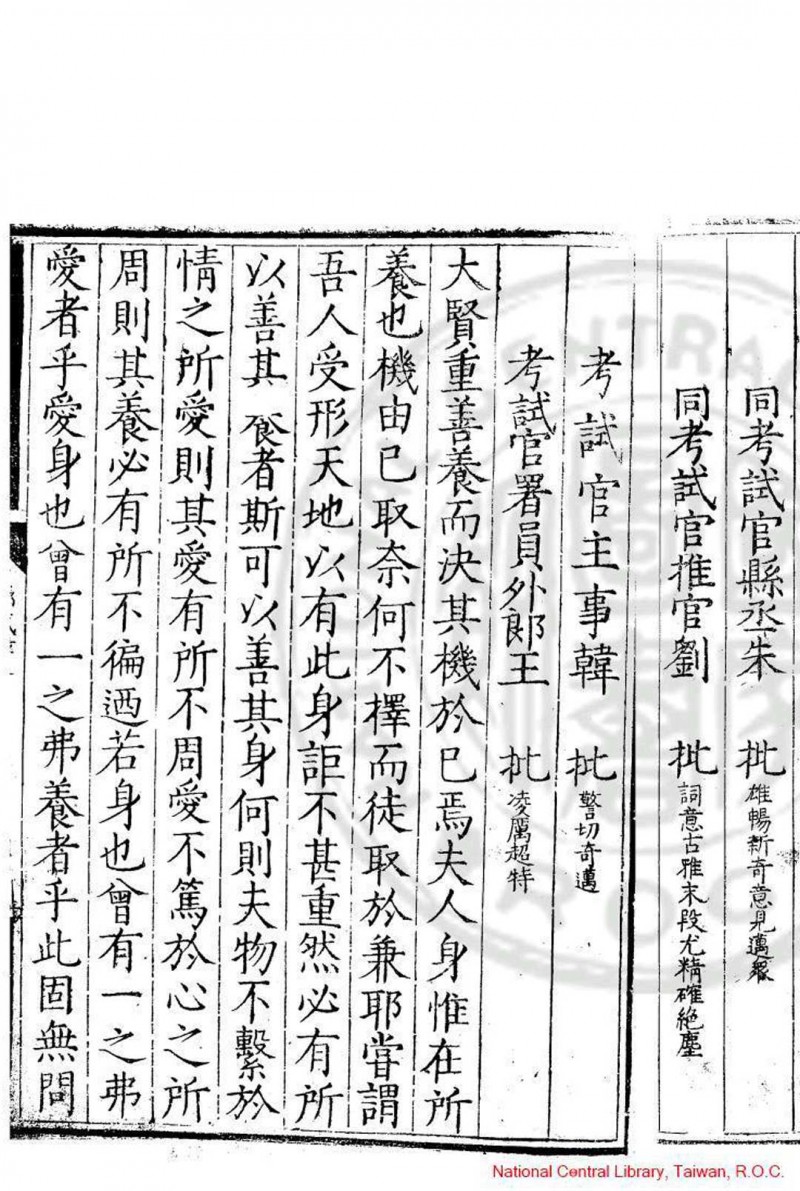 同考試官縣丞朱　批　雄暢新奇意見邁衆
同考試官推官劉　批　詞意古雅末段尤精確絶塵
考試官主事韓　批　警切奇邁
考試官署員外郎王　批　凌厲超特
大賢重善養而決其機於已焉夫人身惟在所
養也機由已取奈何不擇而徒取於兼耶嘗謂
吾人受形天地以有此身詎不甚重然必有所
以善其養者斯可以善其身何則夫物不繫於
情之所愛則其愛有所不周愛不篤於心之所
周則其養必有所不徧迺若身也曾有一之弗
愛者乎愛身也曾有一之弗養者乎此固無問
National Central Library, Taiwan, R.O.C.